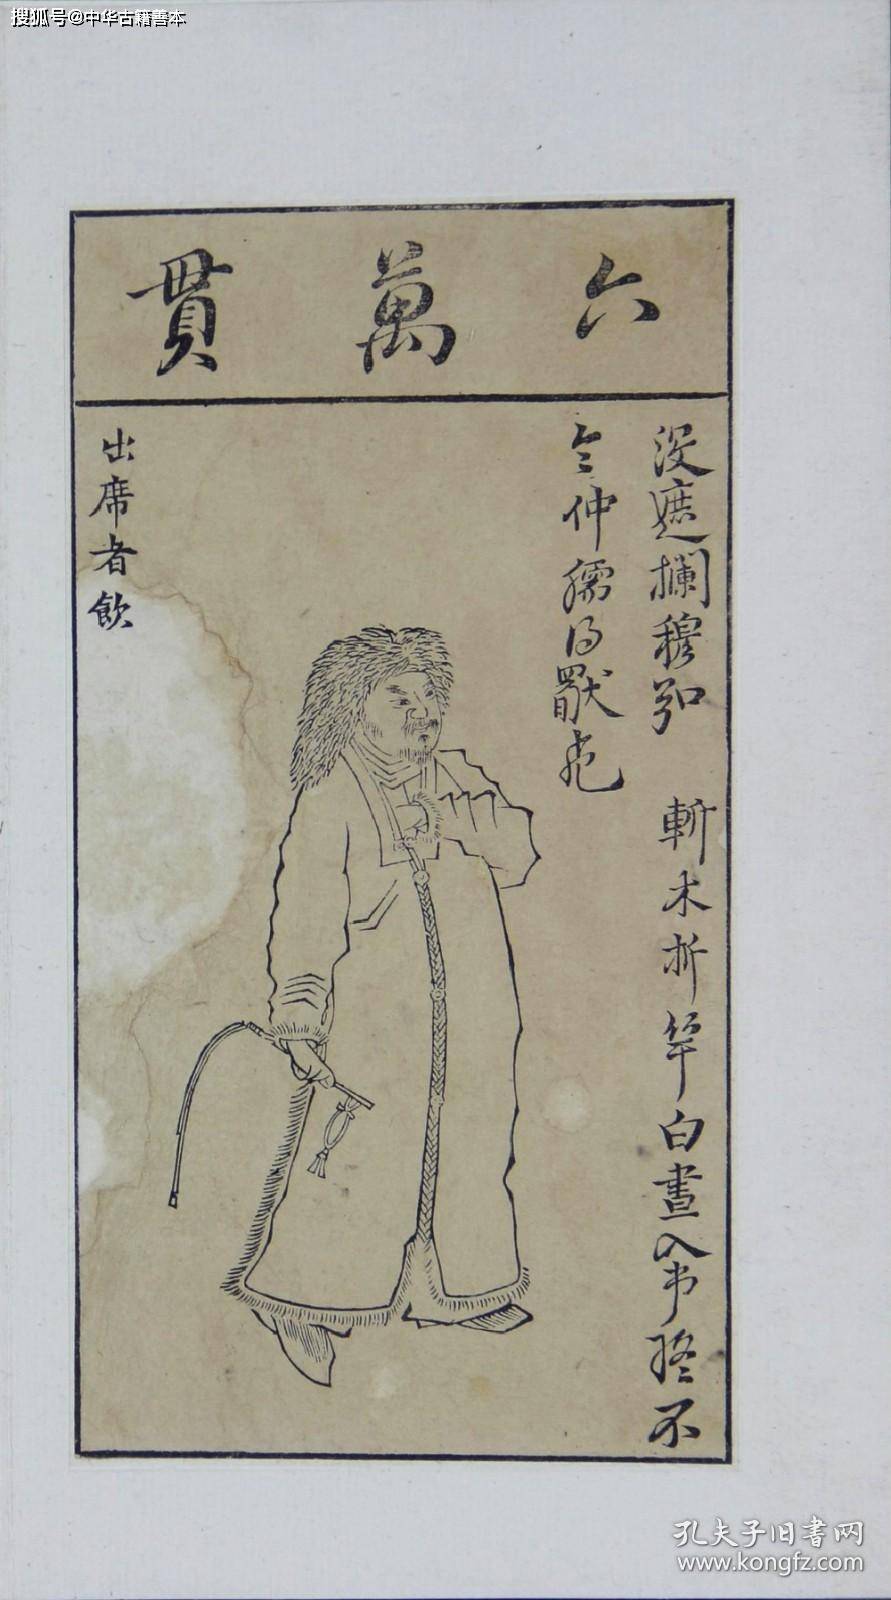 搜狐号@中华古籍善本
六萬貫
没遮攔穆弘
斬木折竿白晝入市終不
令仲孺得獸死
出席者飲
孔夫子旧書网
www.kongfz.com